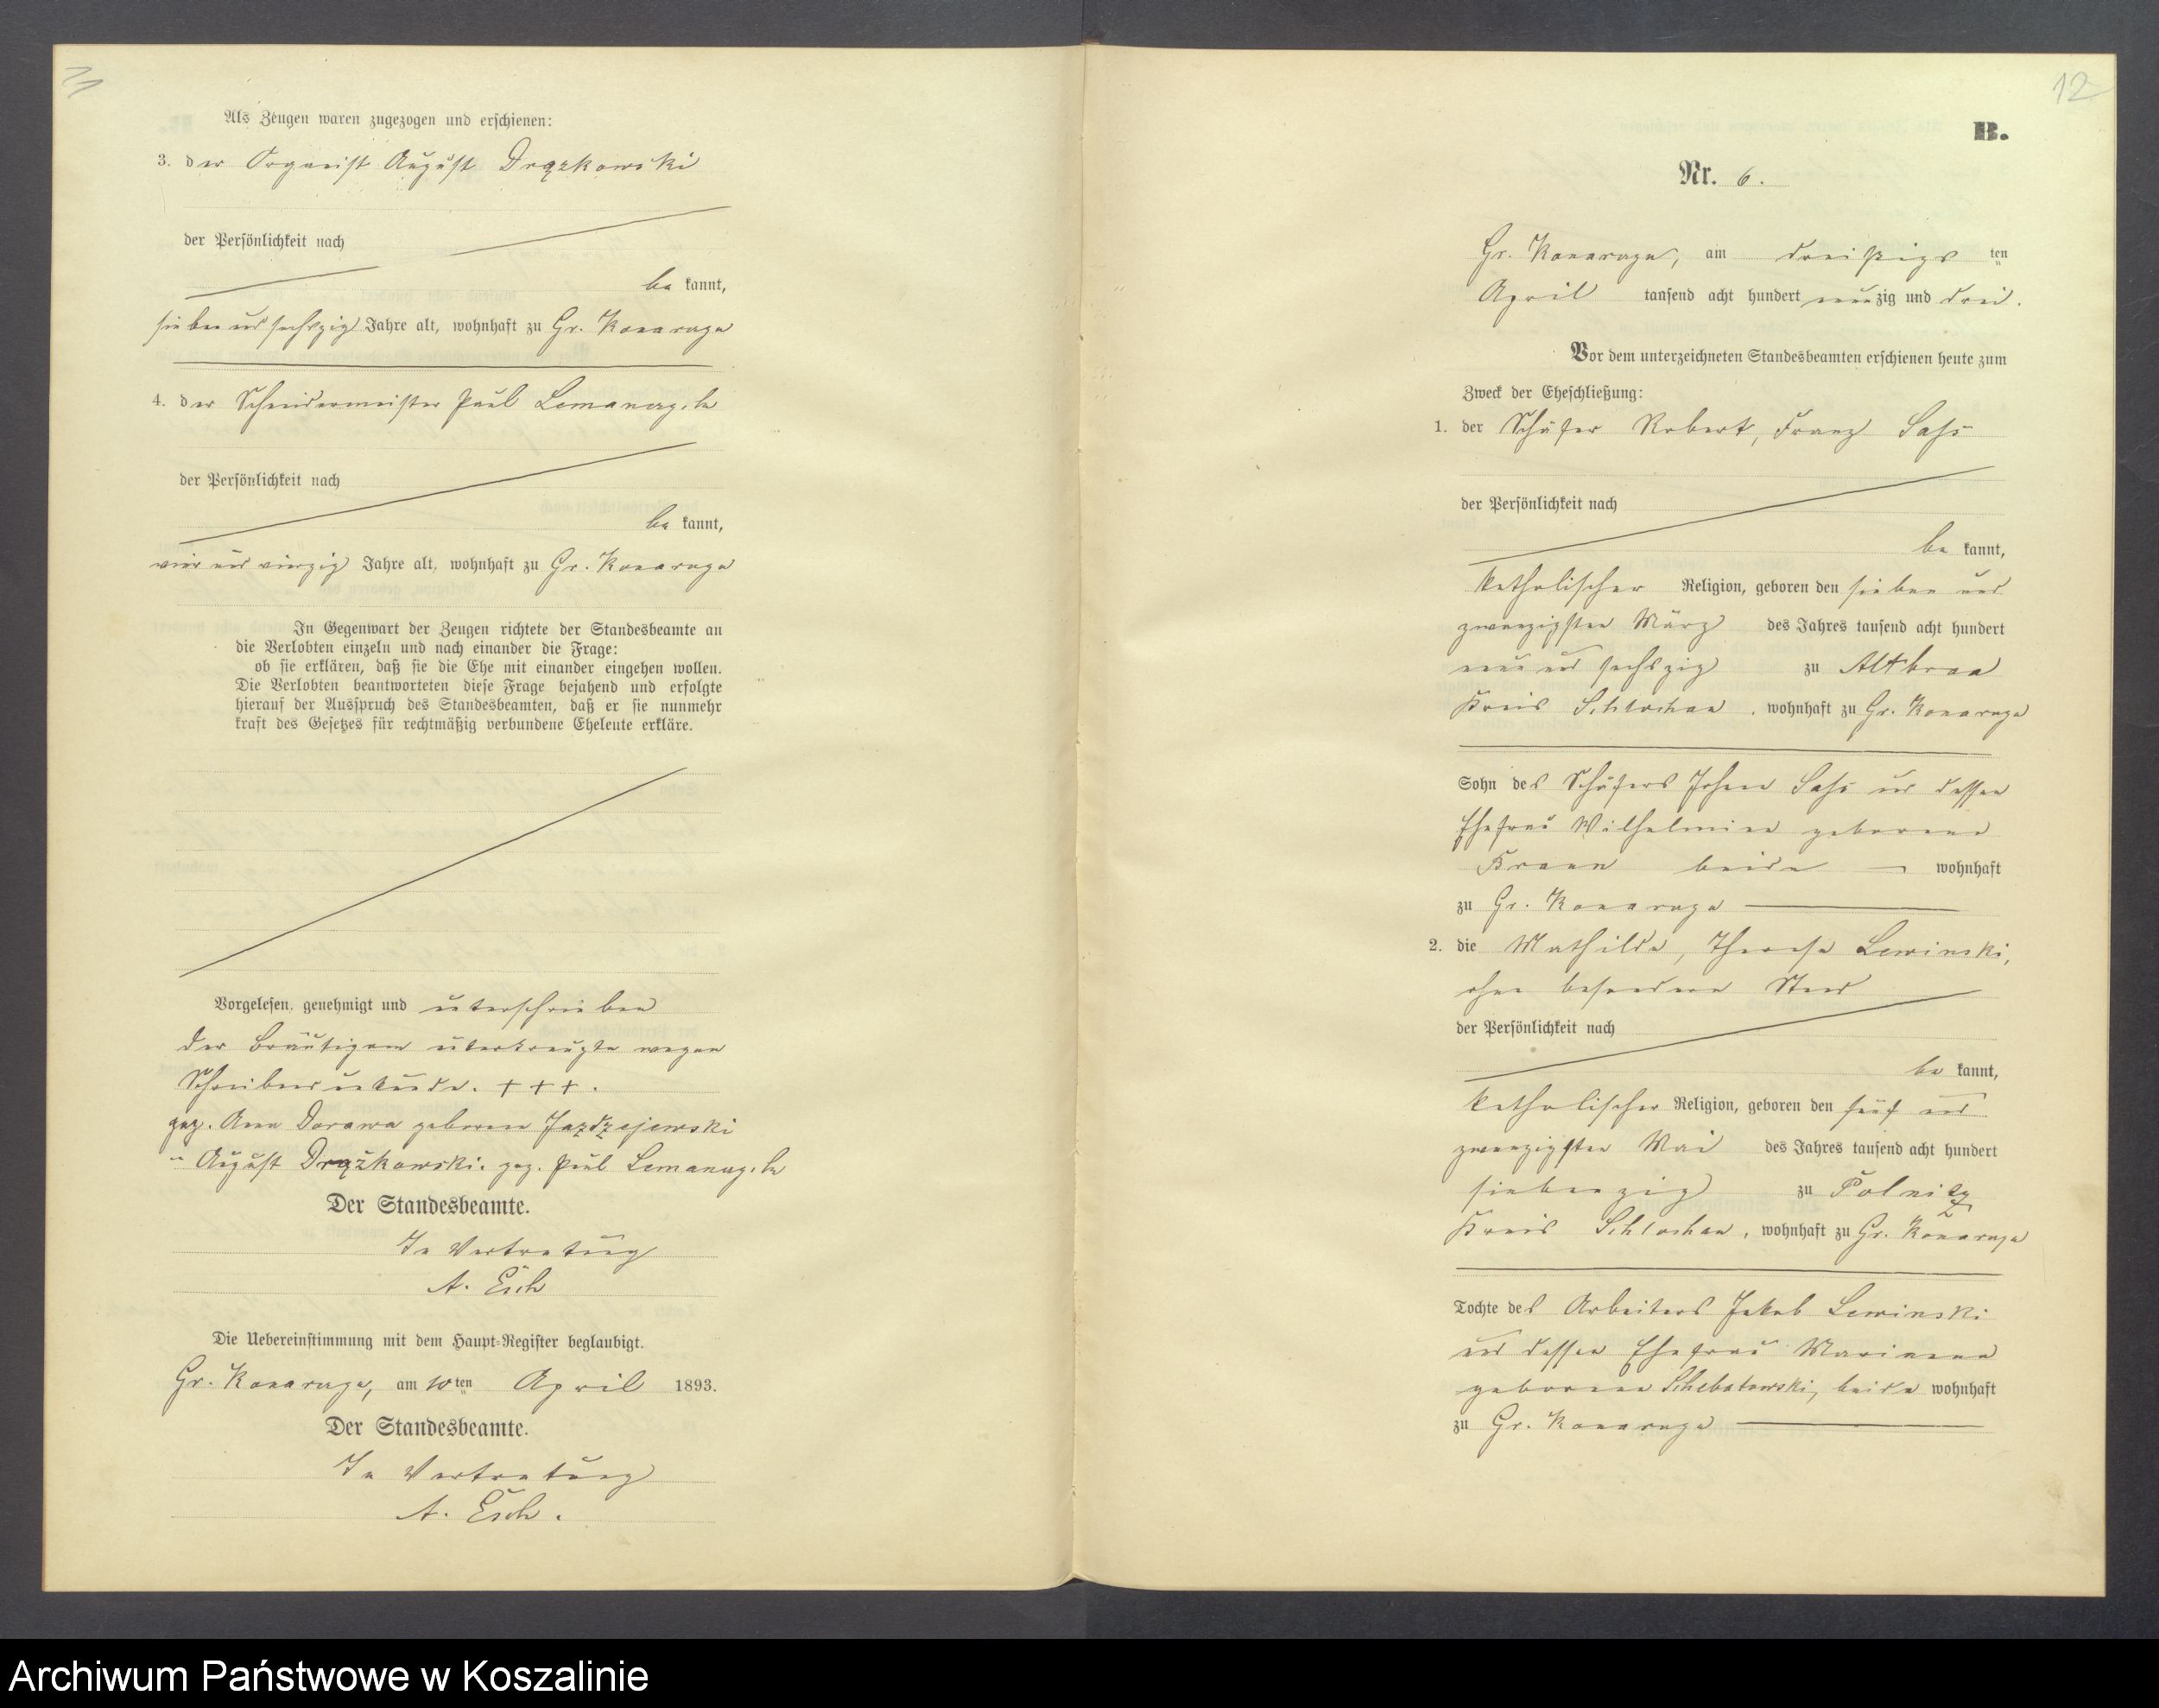 11
Als Zeugen waren zugezogen und erschienen:
3. der Organist August Drążkowski
der Persönlichkeit nach
be kannt,
sieben und sechszig Jahre alt, wohnhaft zu Gr. Konarzyn
4. der Schneidermeister Paul Lemanczyk
der Persönlichkeit nach
be kannt,
vier und vierzig Jahre alt, wohnhaft zu Gr. Konarzyn
In Gegenwart der Zeugen richtete der Standesbeamte an
die Verlobten einzeln und nach einander die Frage:
ob sie erklären, daß sie die Ehe mit einander eingehen wollen.
Die Verlobten beantworteten diese Frage bejahend und erfolgte
hierauf der Ausspruch des Standesbeamten, daß er sie nunmehr
kraft des Gesetzes für rechtmäßig verbundene Eheleute erkläre.
Vorgelesen, genehmigt und unterschrieben
der Bräutigam unterkreuzte wegen
Schreibensunkunde. + + + .
gez. Anna Dorawa geborene Jazdzejewski
" August Drążkowski. gez. Paul
Der Standesbeamte.
In Vertretung
A. Esch
Die Uebereinstimmung mit dem Haupt-Register beglaubigt.
Gr. Konarzyn, am 10ten April 1893.
Der Standesbeamte.
In Vertretung
A. Esch.
12
B.
Nr. 6.
Gr. Konarzyn, am dreißigs ten
April tausend acht hundert neunzig und drei.
Vor dem unterzeichneten Standesbeamten erschienen heute zum
Zweck der Eheschließung:
1. der Schäfer Robert, Franz Sass
der Persönlichkeit nach
be kannt,
katholischer Religion, geboren den sieben und
zwanzigsten März des Jahres tausend acht hundert
neun und sechszig zu Altbraa
Kreis Schlochau, wohnhaft zu Gr. Konarzyn
Sohn des Schäfers Johann Sass und dessen
Ehefrau Wilhelmine geborene
beide wohnhaft
zu Gr. Konarzyn
2. die Mathilde, Therese Lewinski,
ohne besonderen Stand
der Persönlichkeit nach
be kannt,
katholischer Religion, geboren den fünf und
zwanzigsten Mai des Jahres tausend acht hundert
siebenzig zu Polnitz
Kreis Schlochau, wohnhaft zu Gr. Konarzyn
Tochte des Arbeiters Jakob Lewinski
und dessen Ehefrau Marianna
geborene beide wohnhaft
zu Gr. Konarzyn
Archiwum Państwowe w Koszalinie